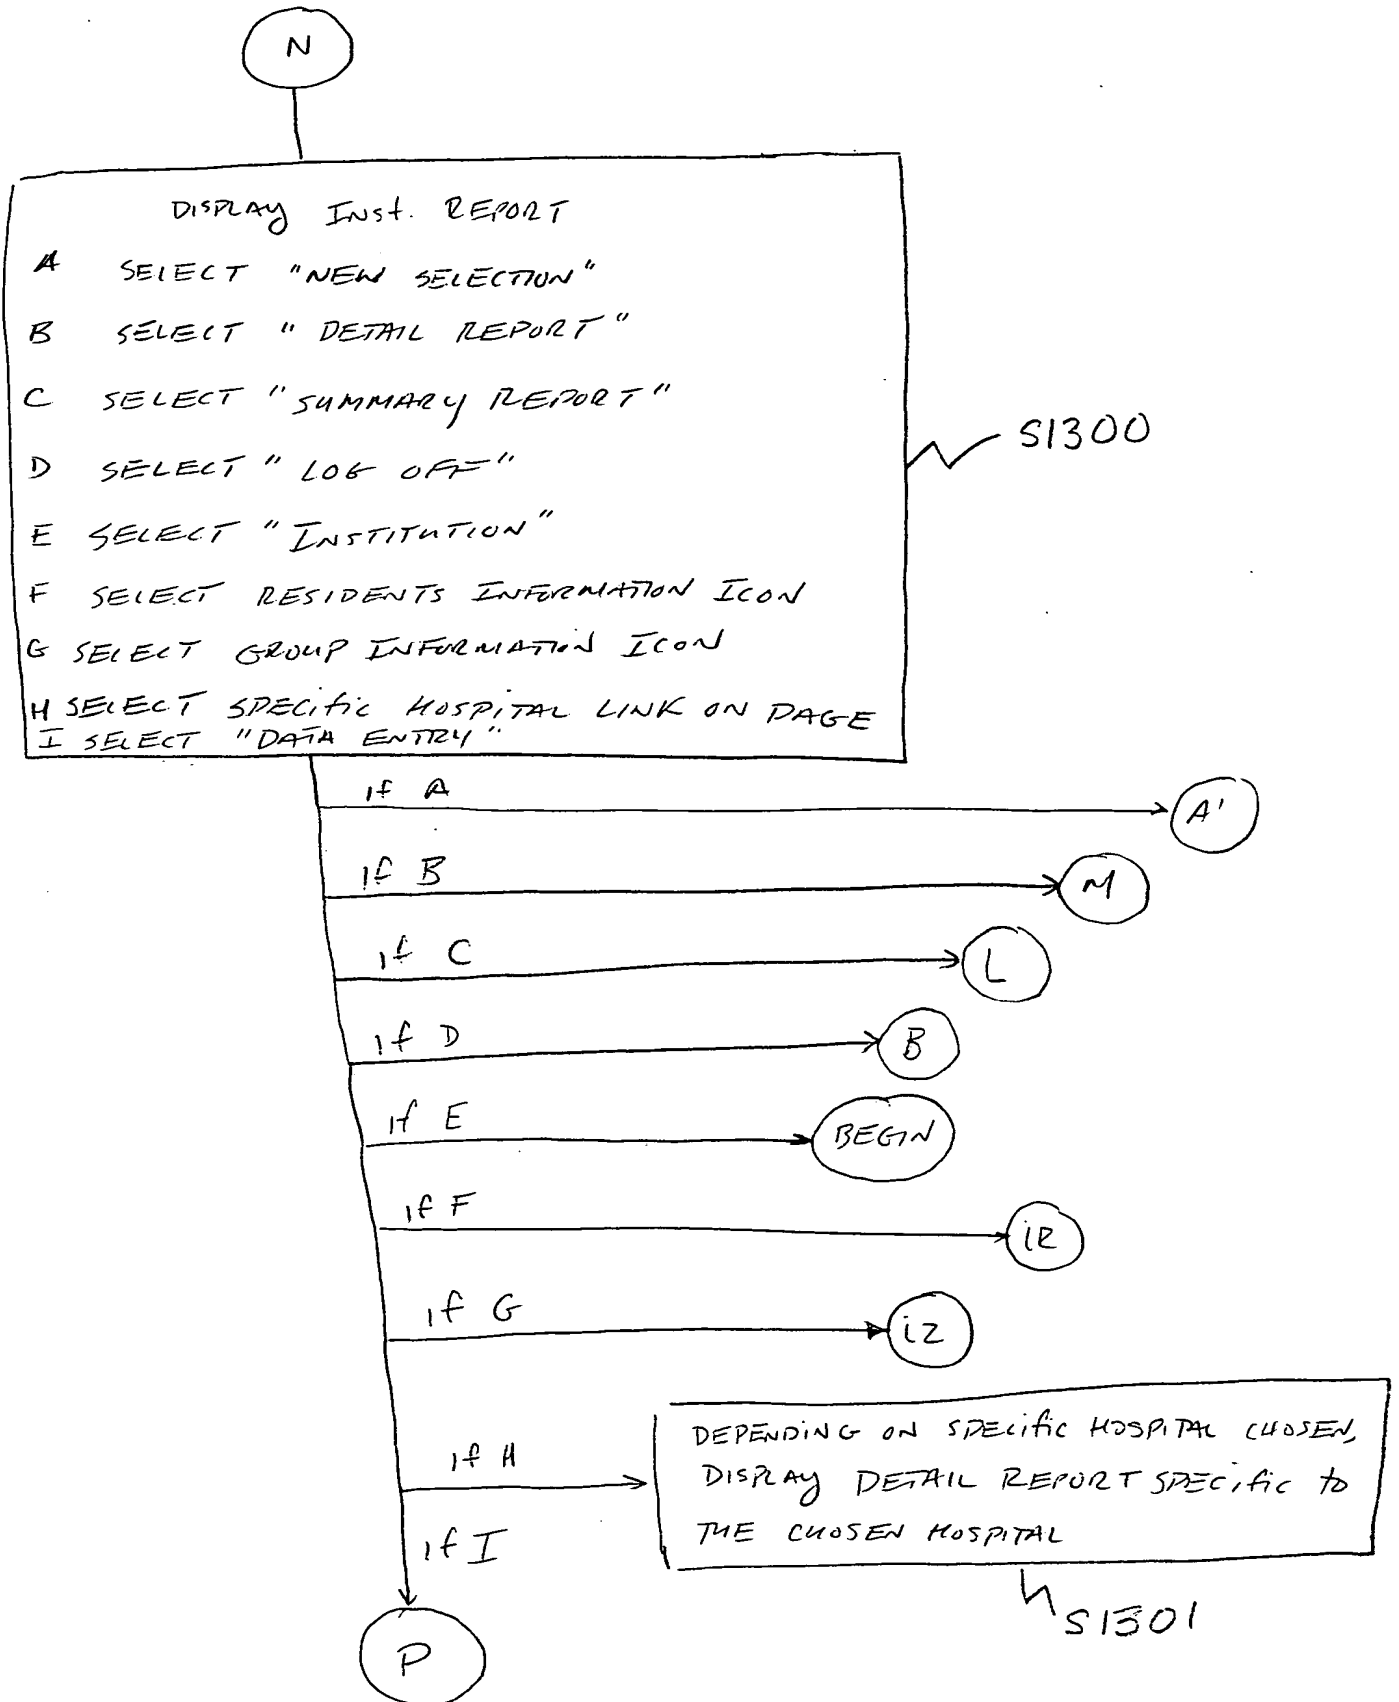 N
DISPLAY INST. REPORT
A SELECT "NEW SELECTION"
B SELECT "DETAIL REPORT"
C SELECT "SUMMARY REPORT"
S1300
D SELECT "LOG OFF"
E SELECT "INSTITUTION"
F SELECT RESIDENTS INFORMATION ICON
G SELECT GROUP INFORMATION ICON
H SELECT SPECIFIC HOSPITAL LINK ON PAGE
I SELECT "DATA ENTRY"
if A
A'
if B
M
if C
L
if D
B
if E
BEGIN
if F
iR
if G
iz
if H
DEPENDING ON SPECIFIC HOSPITAL CHOSEN,
DISPLAY DETAIL REPORT SPECIFIC to
THE CHOSEN HOSPITAL
if I
S1301
P